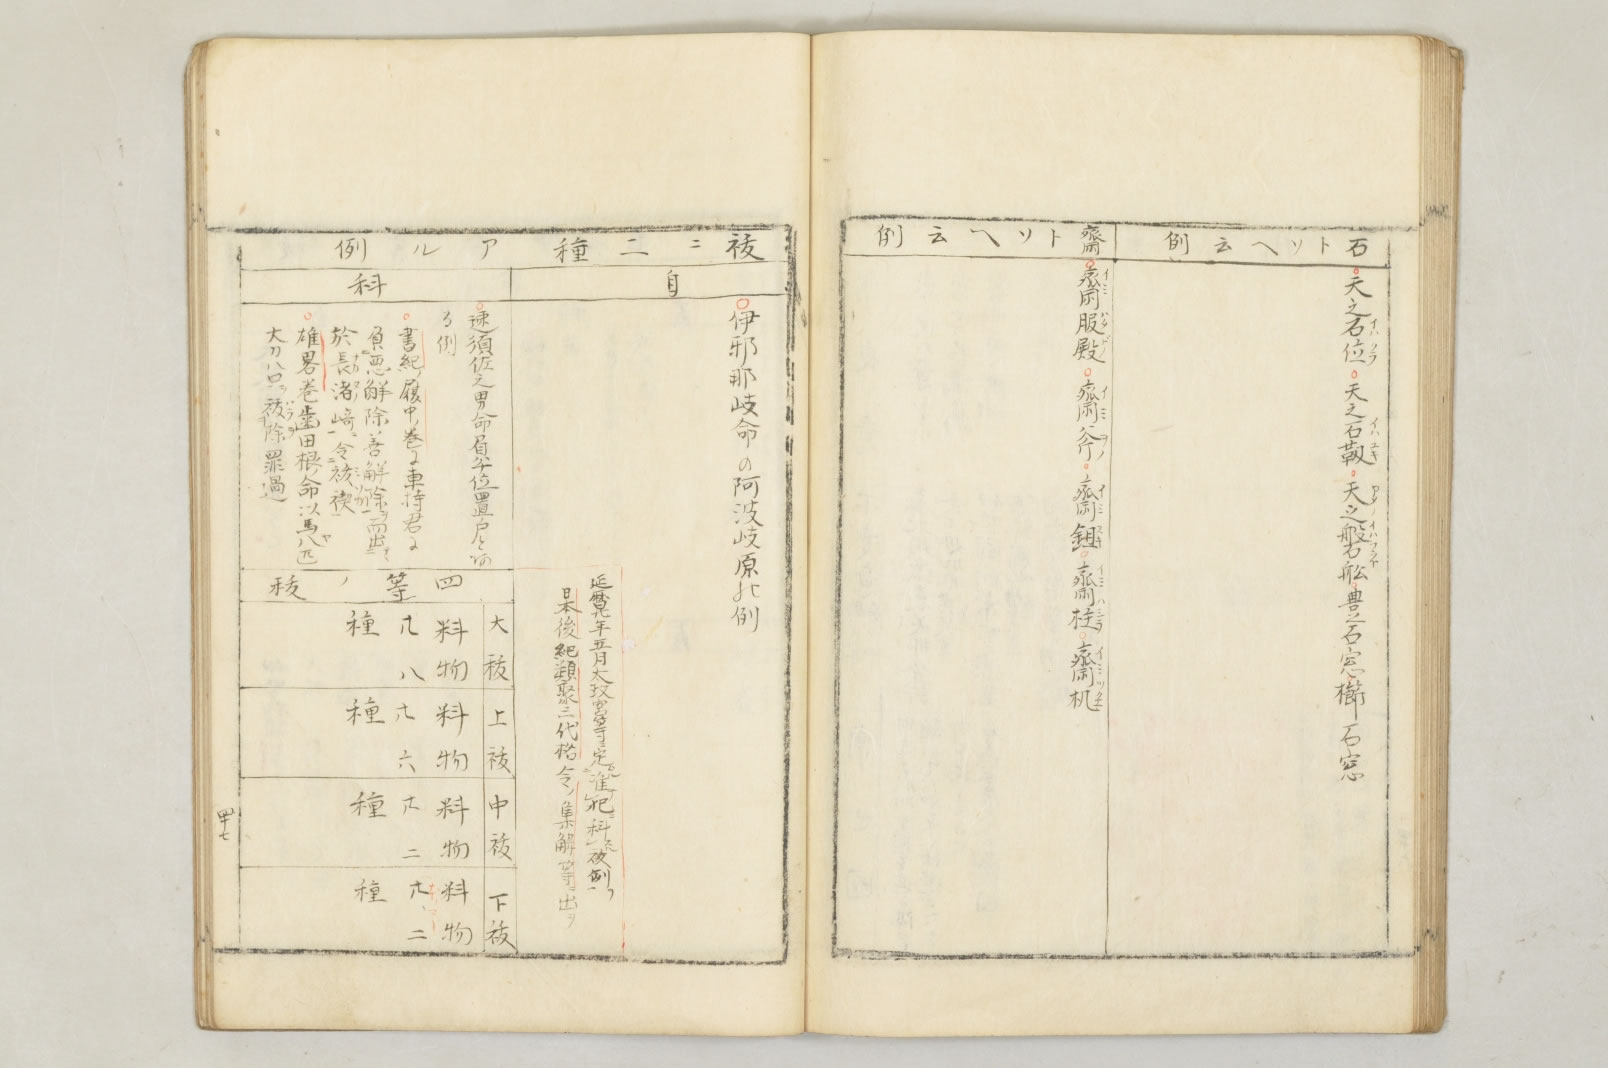 石トソヘ云例
○天之石位○天之石靫○天之磐舩豊石窓櫛石窓
齋トソヘ云例
○齋服殿○齋斧○齋鉏○齋柱○齋机
祓ニ二種アル例
自
○伊邪那岐命の阿波岐原の例
延暦廿年五月太政官
日本後紀類聚三代格令ノ集解等ニ出ヅ
科
○速須佐之男命
る例
○書紀ノ履中ノ巻に車持君に
負悪解除善解除而出
於長渚﨑令祓禊
○雄畧巻歯田根命以馬八匹
大刀八口祓除罪過
四等ノ祓
大祓
料物
廿八
種
上祓
料物
廿六
種
中祓
料物
廿二
種
下祓
料物
廿二
種
四十七